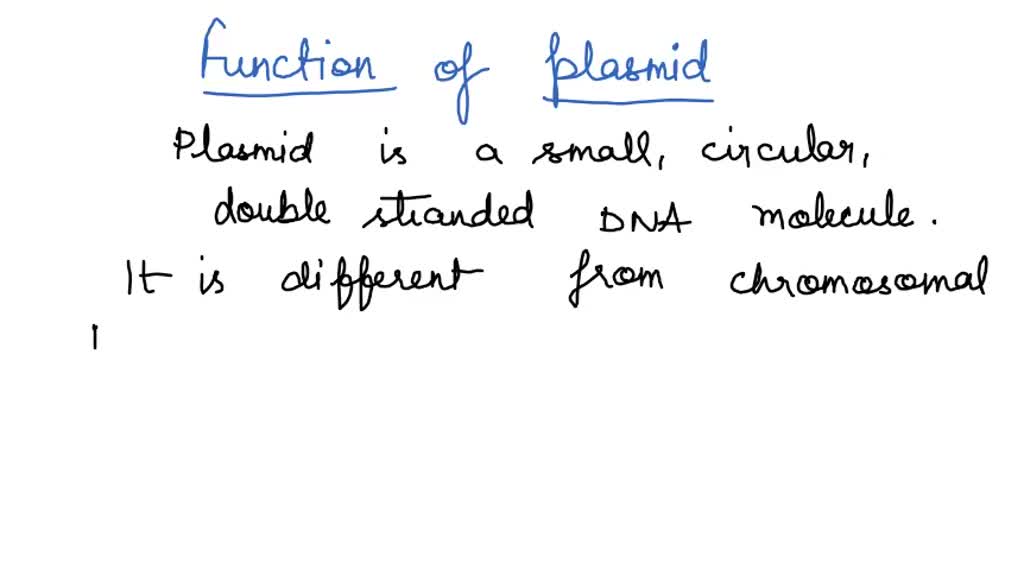 Function of plasmid
Plasmid is a small, circular,
double stranded DNA molecule.
It is different from chromosomal